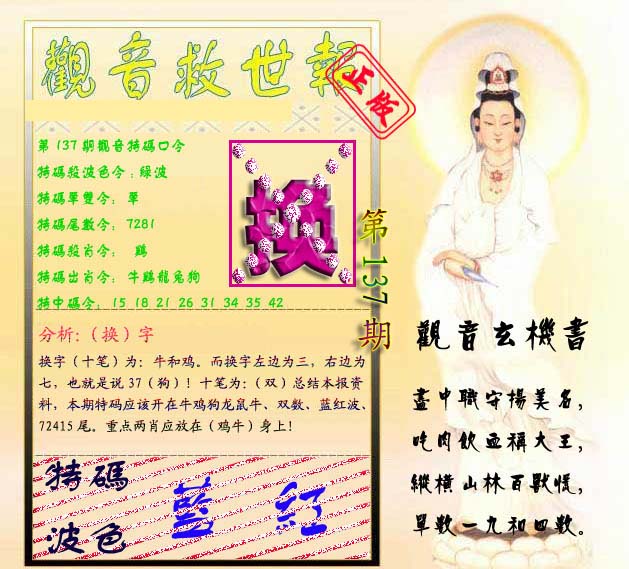 觀音救世報
正版
第137期觀音特碼口令
特碼殺波色令:绿波
特碼單雙令: 單
特碼尾數令: 7281
特碼殺肖令: 鷄
特碼出肖令: 牛鷄龍兔狗
特中碼令: 15 18 21 26 31 34 35 42
换
第137期
分析:(换)字
换字(十笔)为:牛和鸡。而换字左边为三,右边为
七,也就是说37(狗)!十笔为:(双)总结本报资
料,本期特码应该开在牛鸡狗龙鼠牛、双数、蓝红波、
72415尾。重点两肖应放在(鸡牛)身上!
特碼
波色
藍 紅
觀音玄機書
盡中職守揚美名,
吃肉飲血稱大王,
縱橫山林百獸慌,
單數一九和四數。